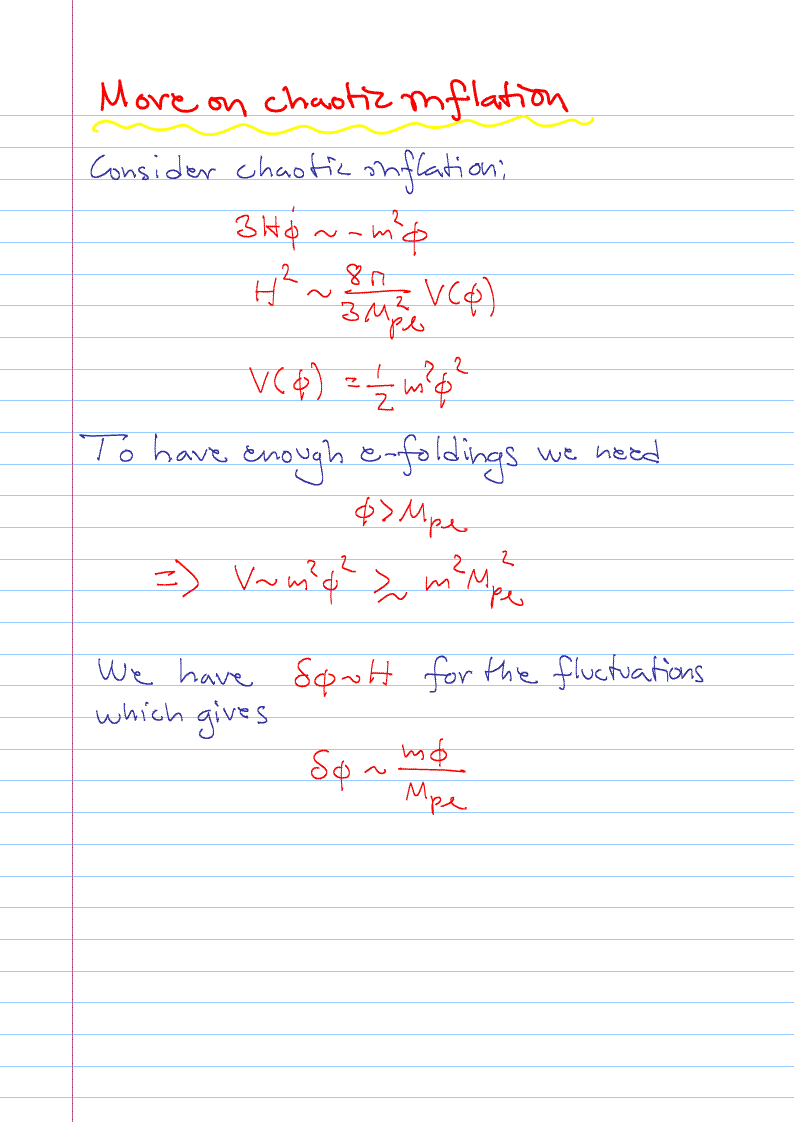 More on chaotic inflation
Consider chaotic inflation:
3Hφ̇ ~ -m²φ
H² ~ 8π/(3M_pl²) V(φ)
V(φ) = 1/2 m²φ²
To have enough e-foldings we need
φ > M_pl
=> V ~ m²φ² ≳ m²M_pl²
We have δφ ~ H for the fluctuations
which gives
δφ ~ mφ/M_pl